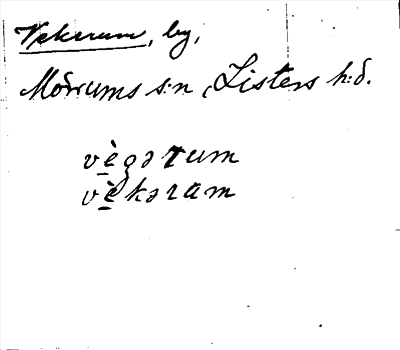 Vekerum, by,
Mörrums s:n, Listers h:d.
vègərum
vèkəram